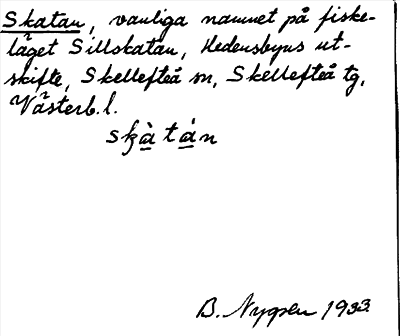 Skatan, vanliga namnet på fiske-
läget Sillskatan, Hedensbyns ut-
skifte, Skellefteå sn, Skellefteå tg,
Västerb. l.
skàtán
B. Nygren 1933